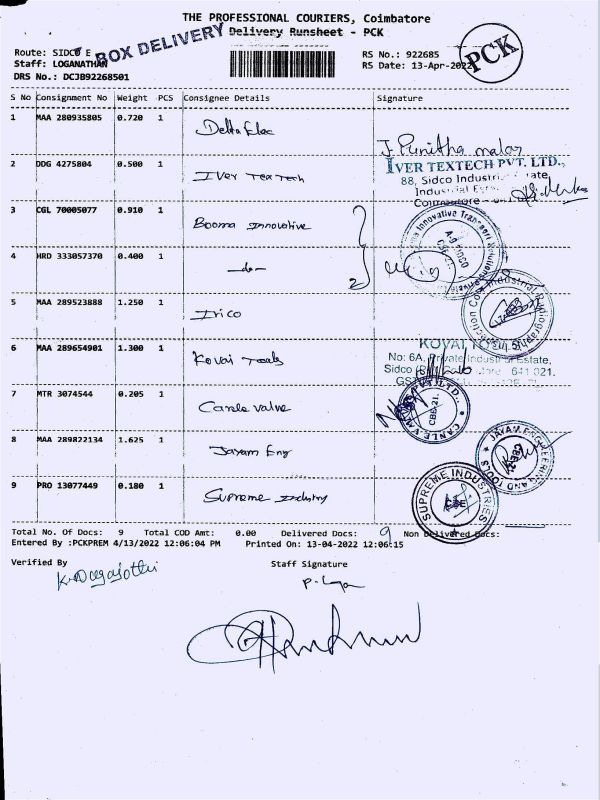 THE PROFESSIONAL COURIERS, Coimbatore
BOX DELIVERY Delivery Runsheet - PCK
PCK
Route: SIDCO E
Staff: LOGANATHAN
DRS No.: DCJB92268501
RS No.: 922685
RS Date: 13-Apr-2022
S No Consignment No Weight PCS Consignee Details Signature
1 MAA 280935805 0.720 1 Delta Elec J. Punitha malar
2 DDG 4275804 0.500 1 Iver Tex Tech
IVER TEXTECH PVT. LTD.,
88, Sidco Industri
Industrial
Coimbatore
3 CGL 70005077 0.910 1 Booma Innovative
4 HRD 333057370 0.400 1 -do- 2
5 MAA 289523888 1.250 1 Irico
6 MAA 289654901 1.300 1 Kovai Tools
KOVAI TOOLS
No: 6A, Private Industrial Estate,
Sidco 641 021.
7 MTR 3074544 0.205 1 Canle valve
CANLE CBE-21.
8 MAA 289822134 1.625 1 Jayam Eng
JAYAM ENGINEERING AND TOOLS
9 PRO 13077449 0.180 1 Supreme Industry
SUPREME INDUSTRIES CBE
Total No. Of Docs: 9 Total COD Amt: 0.00 Delivered Docs: 9 Non Delivered Docs:
Entered By :PCKPREM 4/13/2022 12:06:04 PM Printed On: 13-04-2022 12:06:15
Verified By Staff Signature